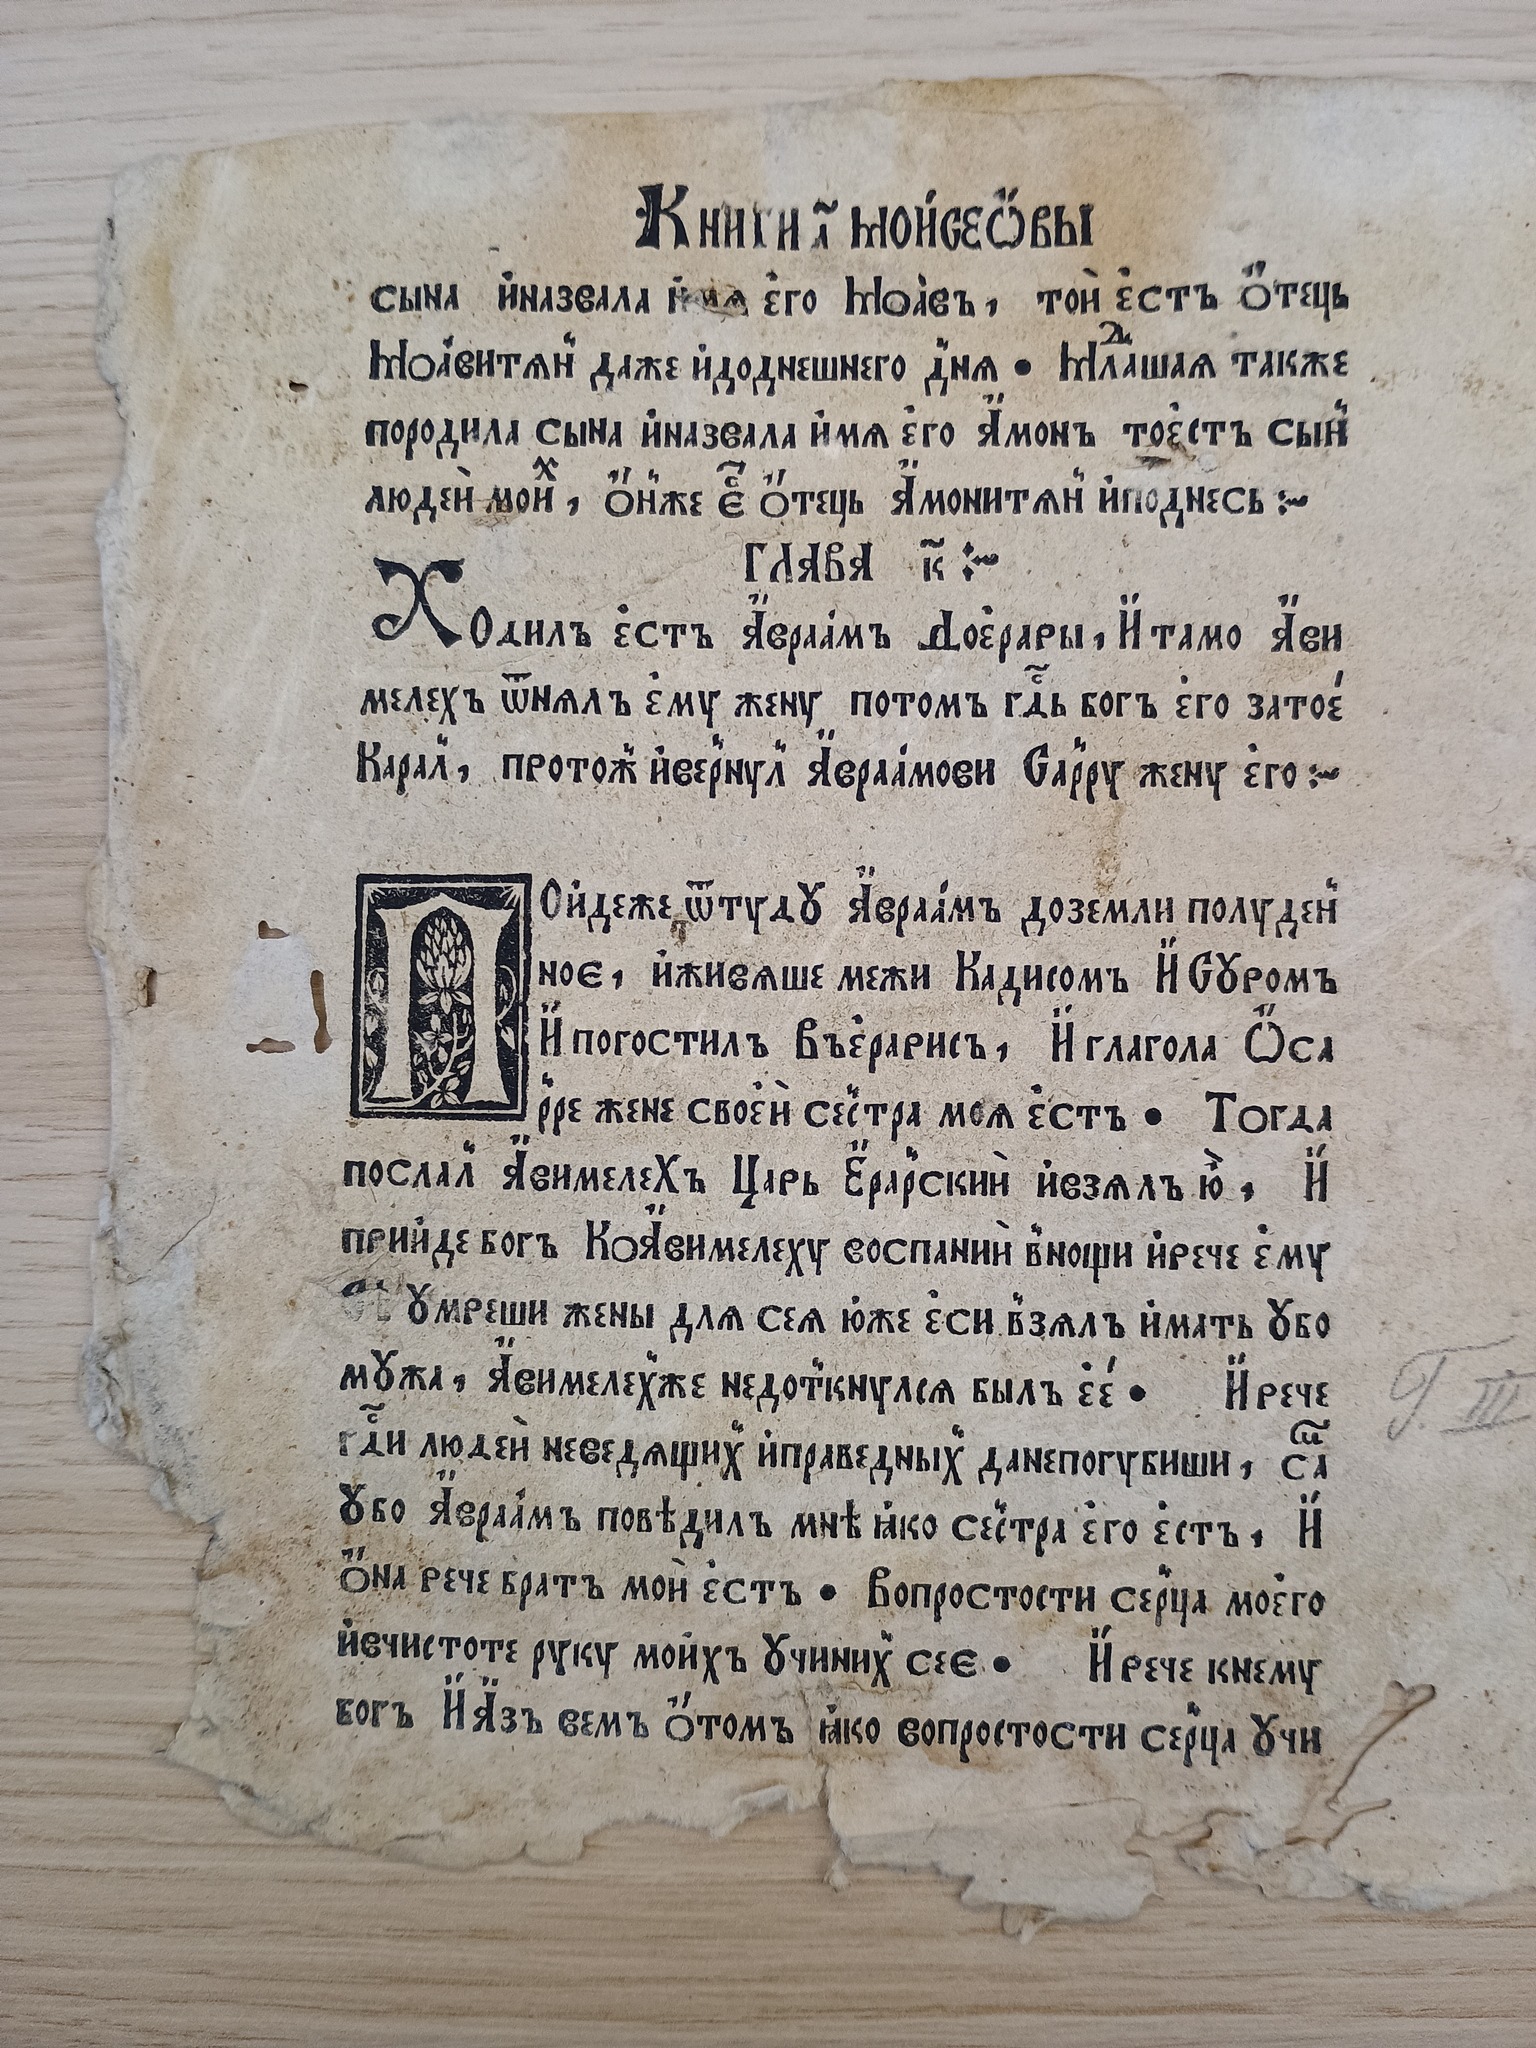 Книги а҃ Мои҆сеѻ҆вы
сына и҆назвала и҆мѧ е҆го Моа҆въ, той е҆стъ ѻ҆тець
Моа҆витѧн̾ даже и҆доднешнего д̾нѧ • Млаⷣшаѧ также
породила сына и҆назвала и҆мѧ е҆го А҆монъ тое҆стъ сын̾
людей мои̾ⷯ, ѻ҆н̾же е҆҃ ѻ҆тець А҆монитѧн̾ и҆поднесь :~
Глава к҃ :~
Ходилъ е҆стъ А҆враа҆мъ Дое҆рары, И҆ тамо А҆ви
мелехъ ѿнѧлъ е҆му жену потомъ гдⷭ҇ь богъ е҆го затое́
Карал̾, протож̾ и҆вер̾нул̾ А҆враа҆мови Сар̾ру жену е҆го :~
Пои҆деже ѿтуду А҆враа҆мъ доземли полуден̾
ное, и҆живѧше межи Кадисомъ И҆ Суромъ
И҆ погостилъ Въе҆рарисъ, И҆ глагола Ѻ҆са
р̾ре жене свое҆й сес̾тра моѧ е҆стъ • Тогда
послал̾ А҆вимелеХъ Царь Е҆рар̾ский и҆взѧлъ ю҆̀, И҆
прии҆де богъ КоА҆вимелеху воспаний в̾нощи и҆рече е҆му
Се ꙋмреши жены длѧ сеѧ ю҆же е҆си в̾зѧлъ и҆мать ꙋбо
мꙋжа, А҆вимелех̾же недот̾кнулсѧ былъ е҆е́ • И҆ рече
гдⷭ҇и людей неведѧщих̾ и҆праведных̾ данепогубиши, саⷮⷨ
ꙋбо А҆враа҆мъ повѣдилъ мнѣ ꙗ҆ко сес̾тра е҆го е҆стъ, И҆
ѻ҆на рече братъ мой е҆стъ • Вопростости сер̾ца мое҆го
и҆вчистоте руку мои҆хъ ꙋчиних̾ сее • И҆ рече кнему
богъ И҆ А҆зъ вемъ ѻ҆томъ ꙗ҆ко вопростости сер̾ца ꙋчи
Г. III